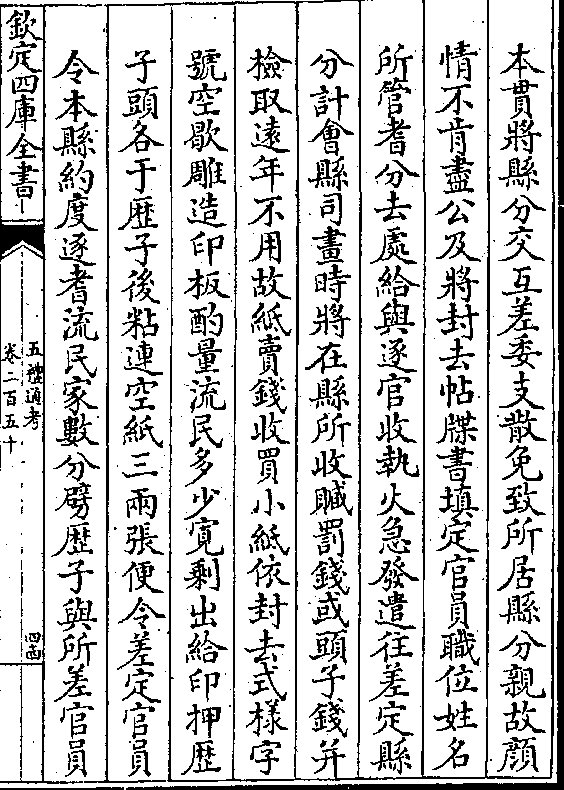 本貫將縣分交互差委支散免致所居縣分親故顔
情不肯盡公及將封去帖牒書填定官員職位姓名
所管耆分去處給與逐官收執火急發遣往差定縣
分計會縣司畫時將在縣所收贓罰錢或頭子錢并
檢取遠年不用故紙賣錢收買小紙依封去式樣字
號空歇雕造印板酌量流民多少寛剩出給印押歴
子頭各于歴子後粘連空紙三兩張便令差定官員
令本縣約度逐耆流民家數分劈歴子與所差官員
欽定四庫全書
五禮通考
卷二百五十